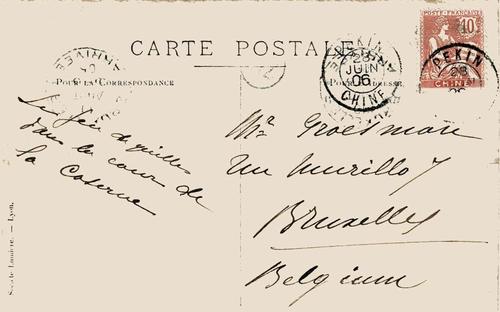 CARTE POSTALE
POUR LA CORRESPONDANCE
POUR L'ADRESSE
POSTE FRANÇAISE
10
PEKIN
23
JUIN
06
CHINE
PEKIN
23
CHINE
ARRIVÉE
Le jeu de quilles
dans la cour de
la Caserne
Mr Groesman
Rue Murillo 7
Bruxelles
Belgium
Société Lumière. — Lyon.